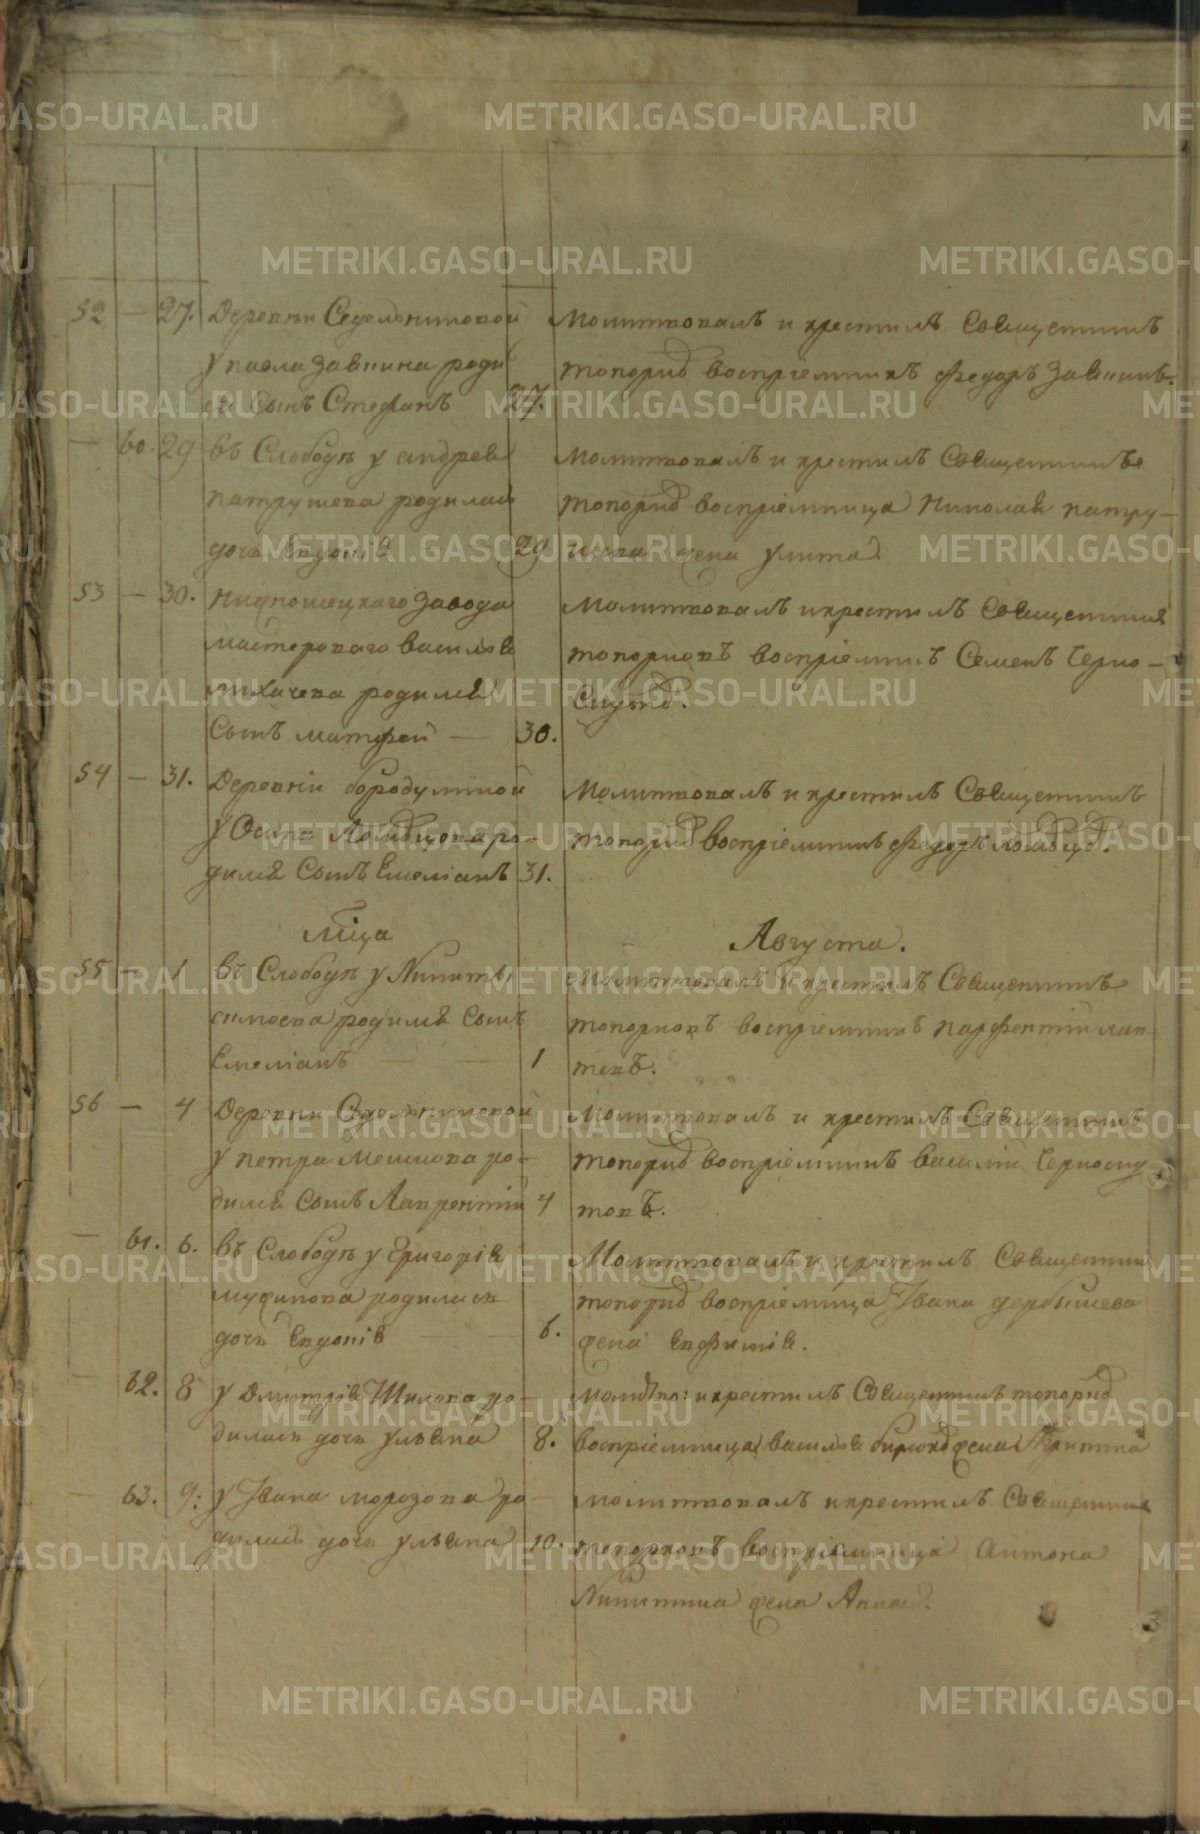 52 — 27. Деревни Седельниковой
у павла Завнина роди
ся сынъ Стефанъ 27.
Молитвовалъ и крестилъ Священникъ
топорков воспріемникъ Федоръ Завнинъ.
— 60. 29 въ Слободѣ у андрея
патрушева родилась
дочь Евдокія 29
Молитвовалъ и крестилъ Священникъ
топорков воспріемница Николая патру—
шева жена улита
53 — 30. завода
мастероваго василья
лихачева родился
Сынъ матфей — 30.
Молитвовалъ и крестилъ Священникъ
топорковъ воспріемникъ Семенъ Черно—
скутов.
54 — 31. Деревни бородулиной
у Осипа ро—
дился Сынъ Емеліанъ 31.
Молитвовалъ и крестилъ Священникъ
топорков воспріемникъ Федоръ
Мѣца
Августа.
55 — 1 въ Слободѣ у Никиты
родился Сынъ
Емеліанъ — — 1
Молитвовалъ и крестилъ Священникъ
топорковъ воспріемникъ парфентій лап-
тевъ.
56 — 4 Деревни Седельниковой
у петра ро—
дился сынъ Лаврентій 4
Молитвовалъ и крестилъ Священникъ
топорков воспріемникъ василій Черноску
товъ.
— 61. 6. въ Слободѣ у Григорія
родилась
дочь Евдокія — — 6.
Молитвовалъ и крестилъ Священник
топорков воспріемница Ивана дербышева
жена евфимія.
— 62. 8 у Дмитрія Шилова ро—
дилась дочь ульяна 8.
молитво: и крестилъ Священникъ топорков
воспріемница василья жена
63. 9: у Ивана морозова ро—
дилась дочь ульяна 10.
молитвовалъ и крестилъ Священник
топорковъ воспріемница Антона
Никитина жена Анна.
METRIKI.GASO-URAL.RU